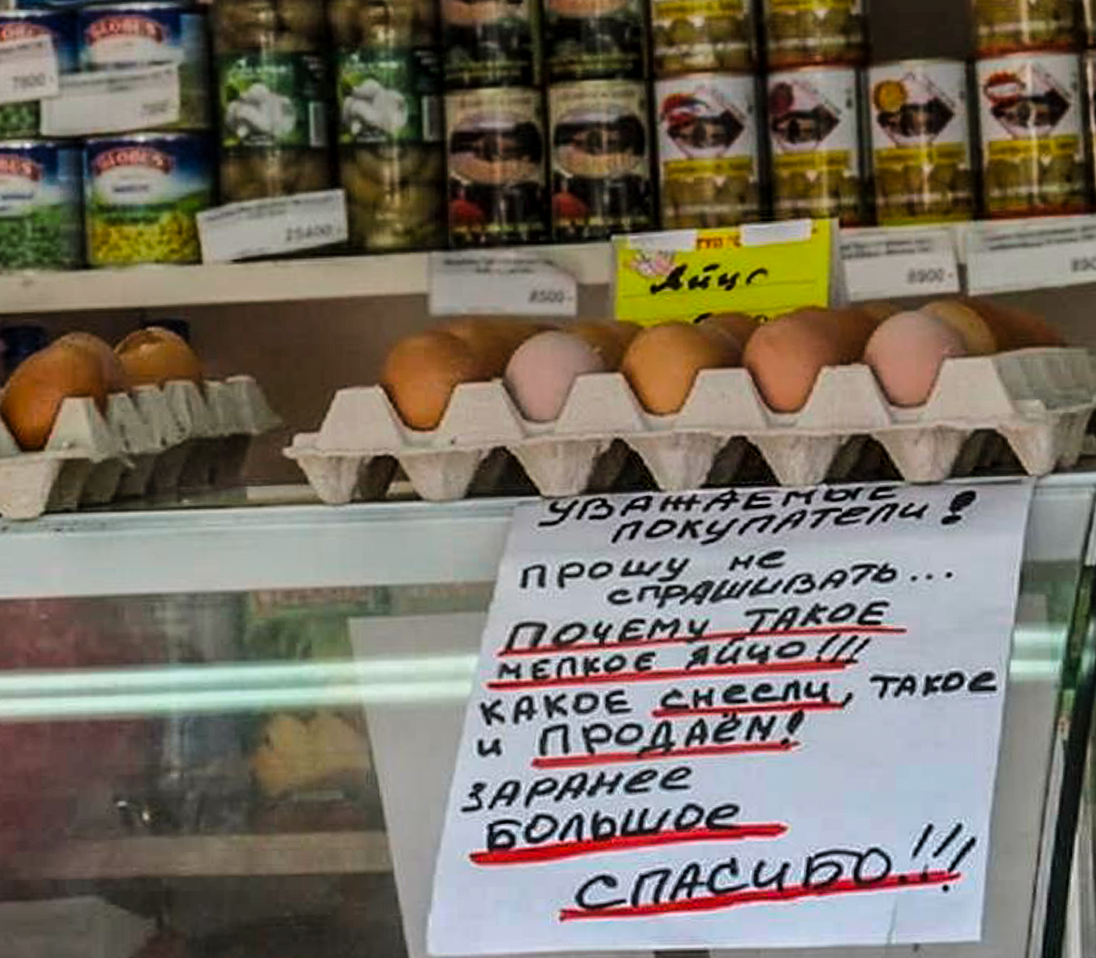 GLOBUS
7800-
GLOBUS
GLOBUS
25400-
8500-
Яйцо
8900-
890
УВАЖАЕМЫЕ
ПОКУПАТЕЛИ!
ПРОШУ НЕ
СПРАШИВАТЬ...
ПОЧЕМУ ТАКОЕ
МЕЛКОЕ ЯЙЦО!!!
КАКОЕ СНЕСЛИ, ТАКОЕ
И ПРОДАЁМ!
ЗАРАНЕЕ
БОЛЬШОЕ
СПАСИБО!!!